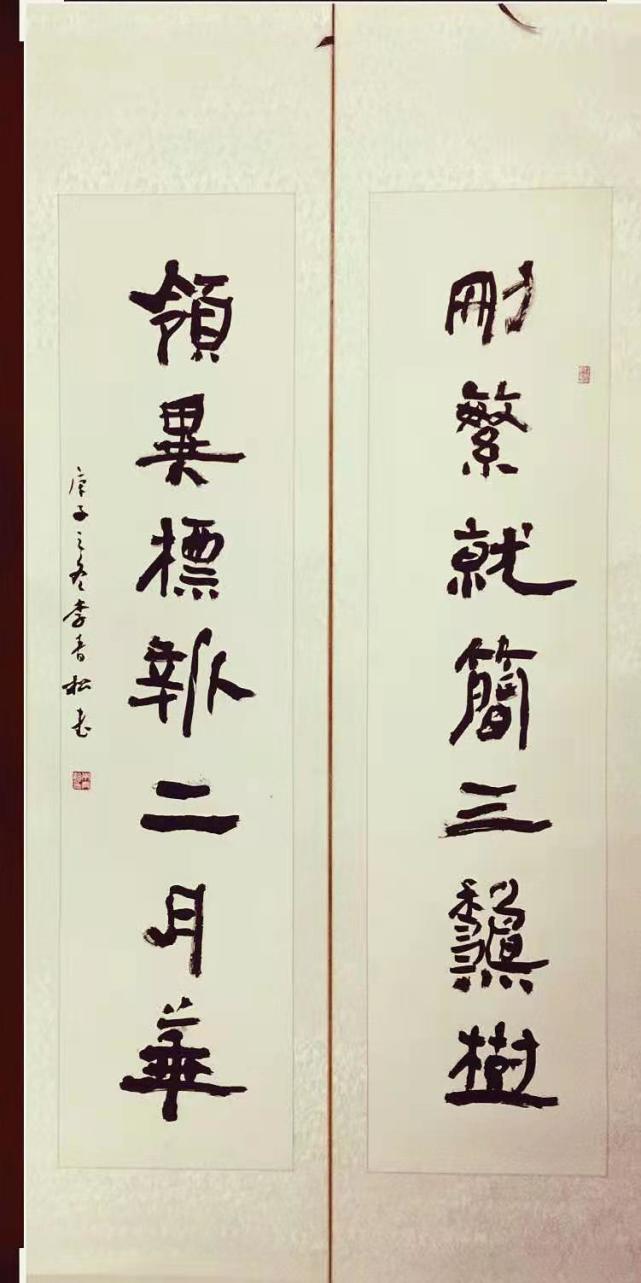 刪繁就簡三龝樹
領異標新二月華
庚子之冬李青松书